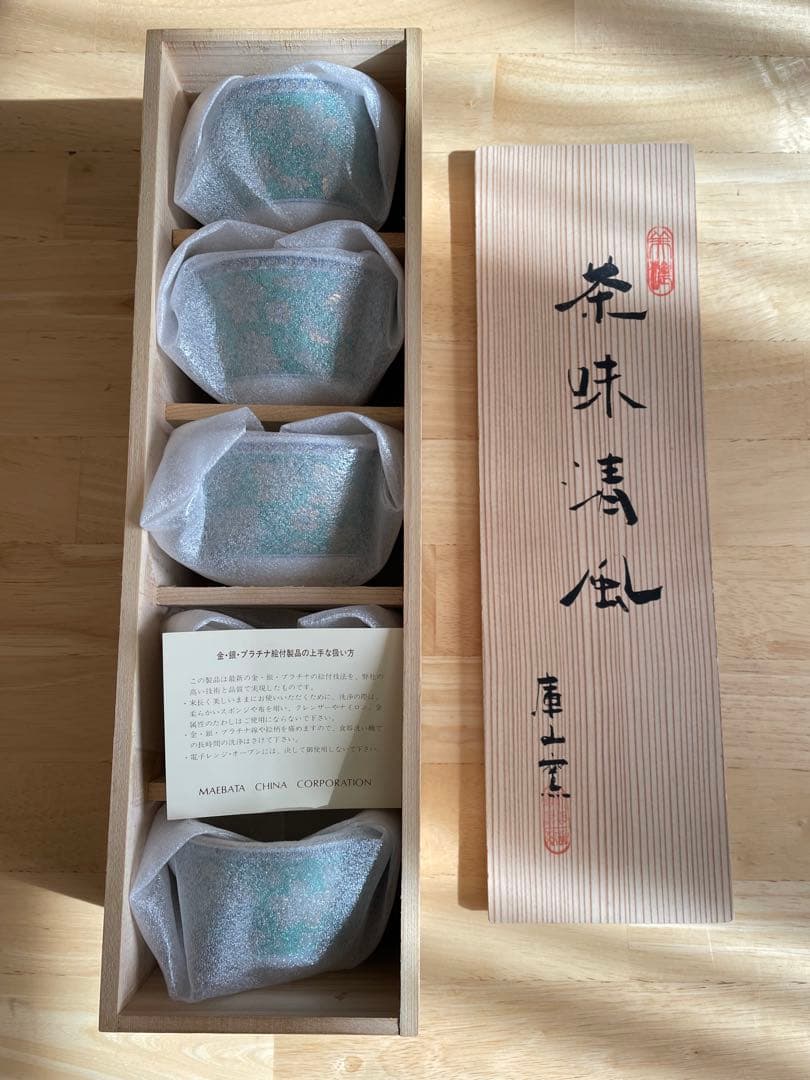 金・銀・プラチナ絵付製品の上手な扱い方
この製品は最新の金・銀・プラチナの絵付技法を、弊社の
高い技術と品質で実現したものです。
・末長く美しいままにお使いいただくために、洗浄の際は、
柔らかいスポンジや布を用い、クレンザーやナイロン、金
属性のたわしはご使用にならないで下さい。
・金・銀・プラチナ線や絵柄を痛めますので、食器洗い機で
の長時間の洗浄はさけて下さい。
・電子レンジ・オーブンには、決して御使用しないで下さい。
MAEBATA CHINA CORPORATION
茶味清風
庫山窯